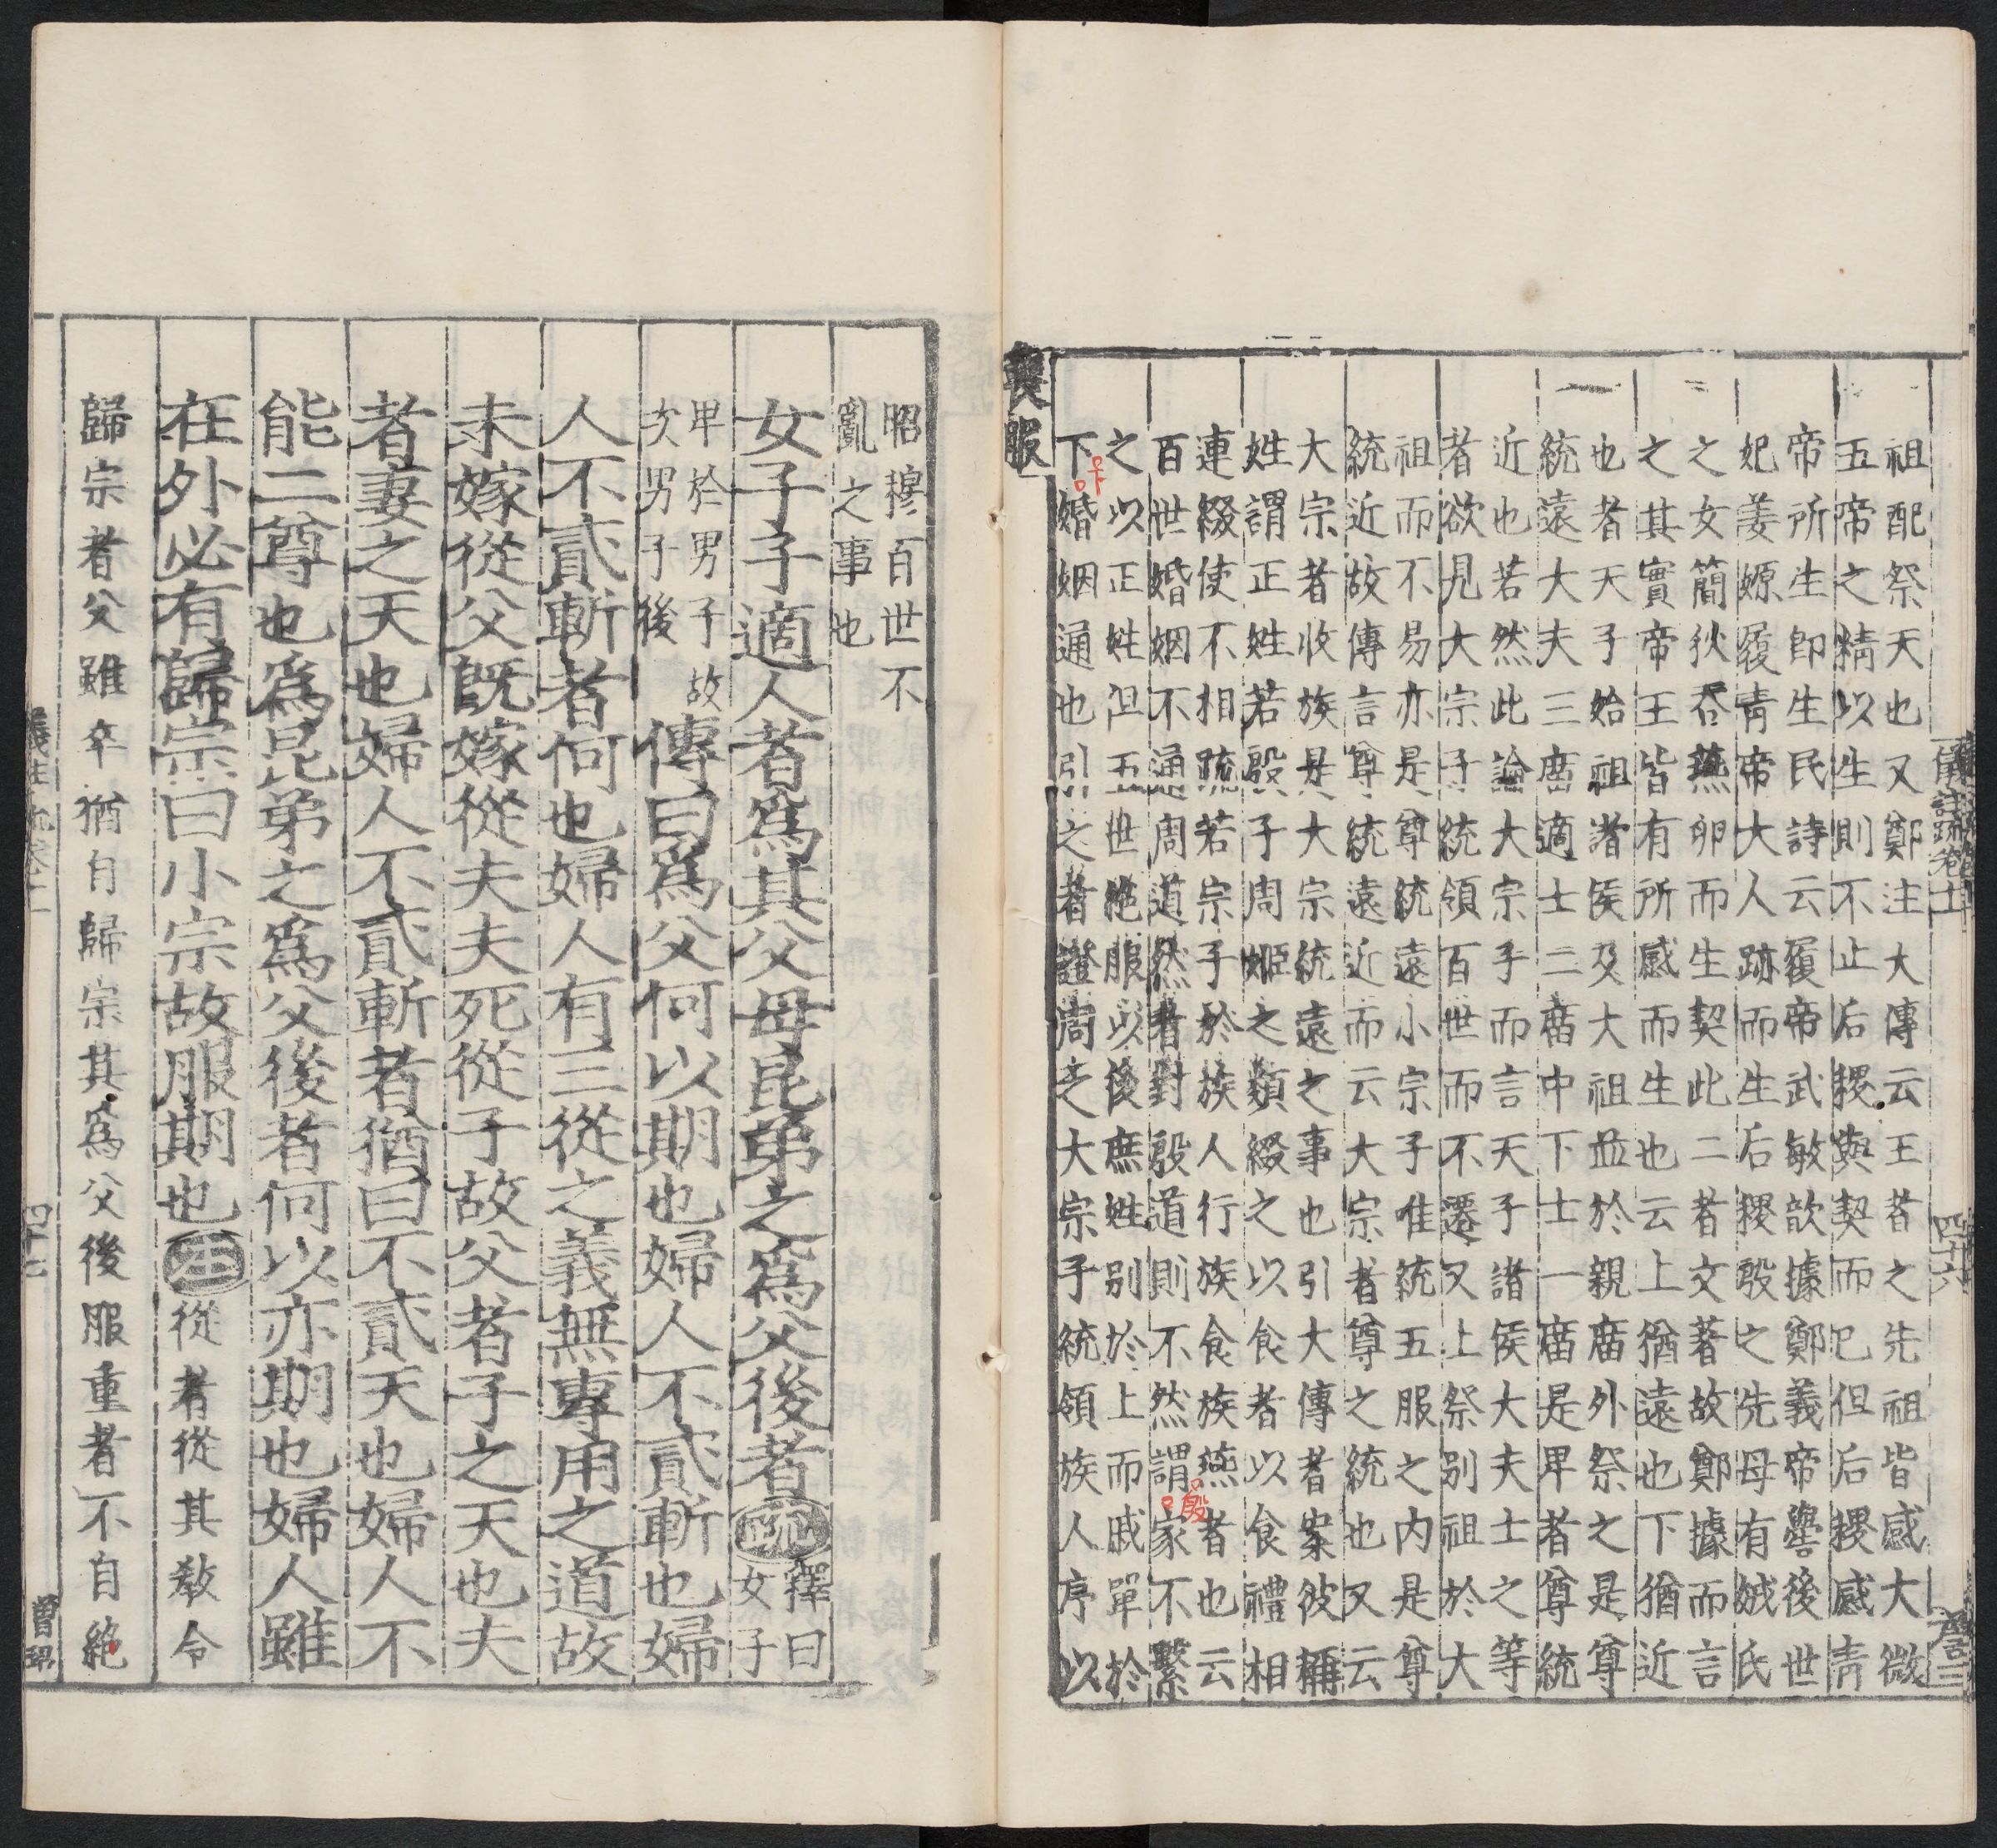 儀註疏卷十一
四十六
祖配祭天也又鄭注大傳云王者之先祖皆感大微
五帝之精以生則不止后稷與契而已但后稷感青
帝所生即生民詩云履帝武敏歆據鄭義帝嚳後世
妃姜嫄履青帝大人跡而生后稷殷之先母有娀氏
之女簡狄吞燕卵而生契此二者文著故鄭據而言
之其實帝王皆有所感而生也云上猶遠也下猶近
也者天子始祖諸侯及大祖並於親廟外祭之是尊
統遠大夫三廟適士二廟中下士一廟是卑者尊統
近也若然此論大宗子而言天子諸侯大夫士之等
者欲見大宗子統領百世而不遷又上祭別祖於大
祖而不易亦是尊統遠小宗子唯統五服之內是尊
統近故傳言尊統遠近而云大宗者尊之統也又云
大宗者收族是大宗統遠之事也引大傳者案彼稱
姓謂正姓若殷子周姬之類綴之以食者以食禮相
連綴使不相疏若宗子於族人行族食族燕者也云
百世婚姻不通周道然者對殷道則不然謂家不繫
殷
之以正姓但五世絶服以後庶姓別於上而戚單於
下婚姻通也引之者證周之大宗子統領族人序以
喪服
昭穆百世不
亂之事也
女子子適人者爲其父母昆弟之爲父後者疏釋曰
女子
卑於男子故
次男子後
傳曰爲父何以期也婦人不貳斬也婦
人不貳斬者何也婦人有三從之義無專用之道故
未嫁從父既嫁從夫夫死從子故父者子之天也夫
者妻之天也婦人不貳斬者猶曰不貳天也婦人不
能二尊也爲昆弟之爲父後者何以亦期也婦人雖
在外必有歸宗曰小宗故服期也注從者從其敎令
歸宗者父雖卒猶自歸宗其爲父後服重者不自絶
四十七
曾琪